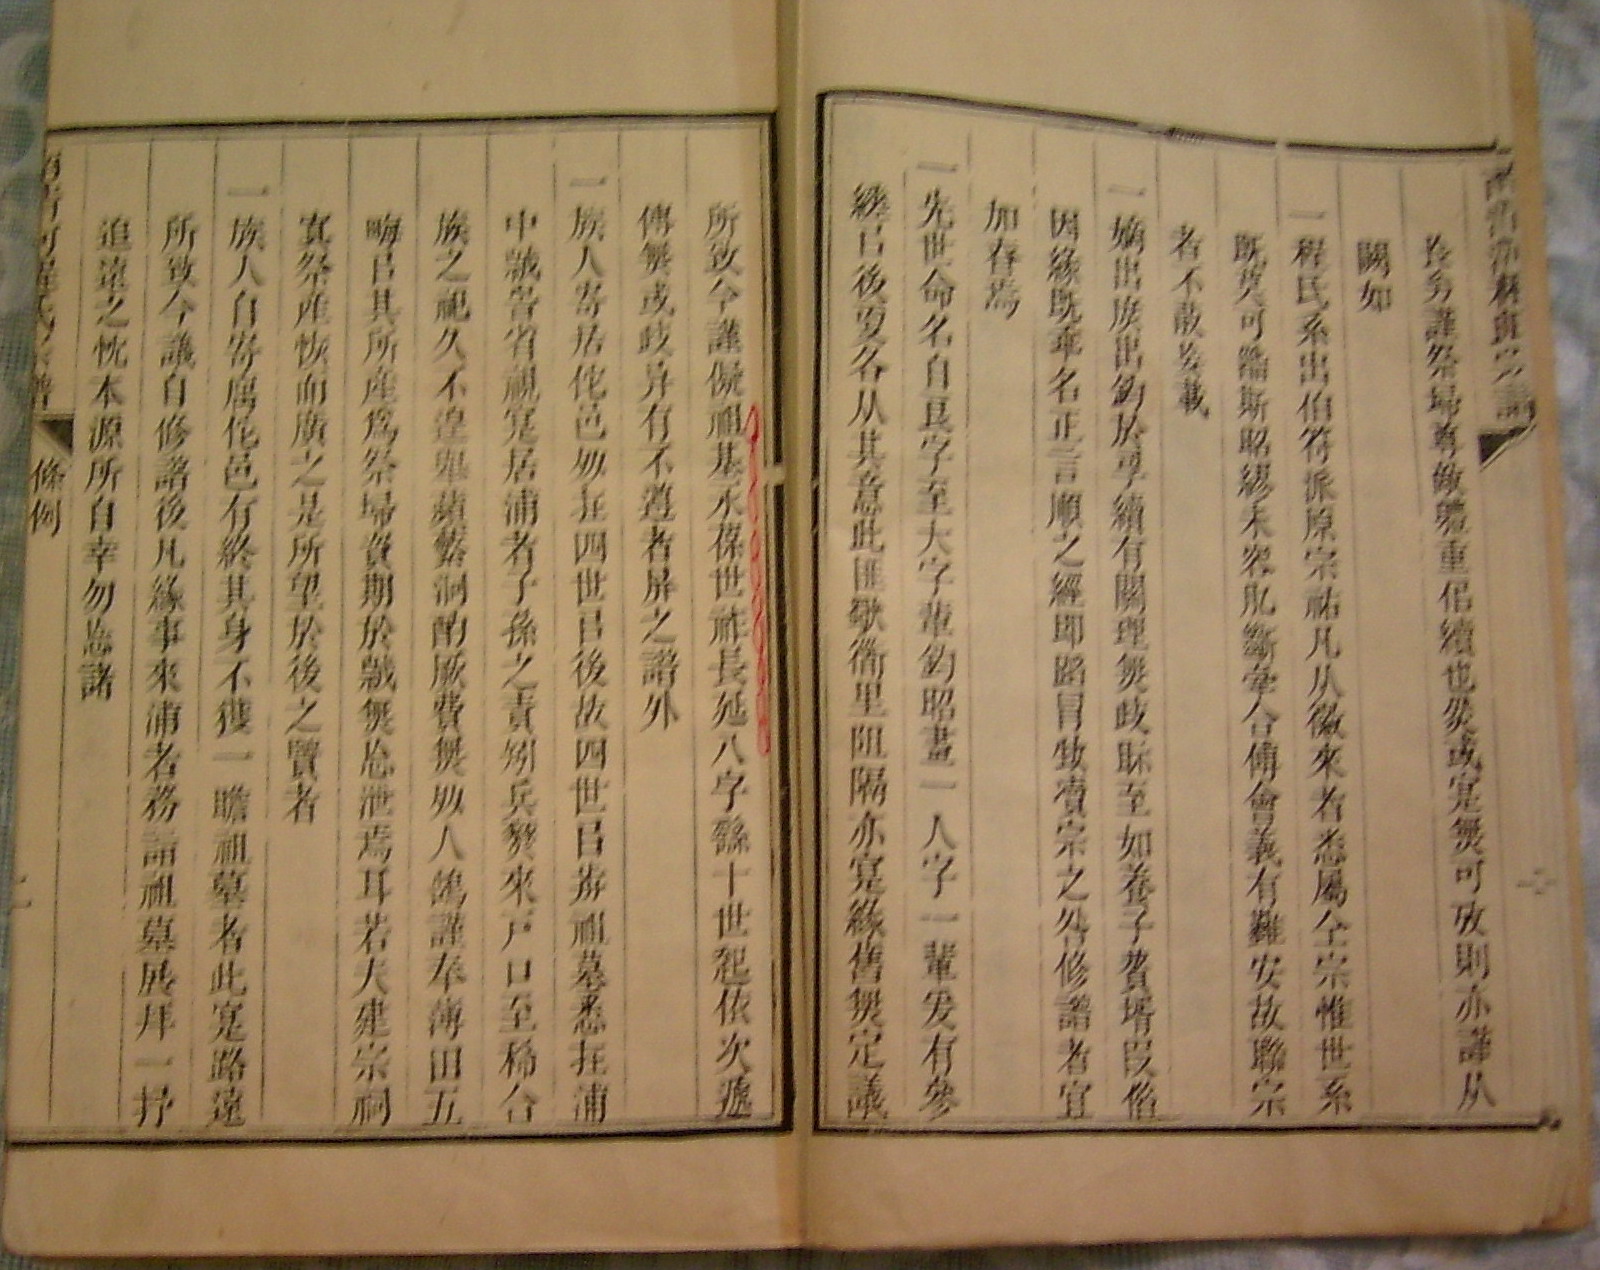 長房謹祭埽尊敬體重侶續也煢或寔無可攷則亦謹从
闕如
一程氏系出伯符派原宗祐凡从徽來者悉屬仝宗惟世系
既莫可論斯昭繆未容肊斷牽合傅會義有難安故聯宗
者不敢登載
一嫡出庶出鈞於乎續有關理無歧眂至如養子贅壻叚俗
因緣既乖名正言順之經即蹈冒牧賣宗之咎修譜者宜
加眘焉
一先世命名自良字至大字輩鈞昭畫一人字一輩发有參
繼㠯後叓各从其意此匪歇衖里阻隔亦寔緣舊無定議
所致今謹儗祖基永葆世祚長延八字繇十世起依次遞
傳無或歧异有不遵者屏之譜外
一族人寄居侘邑毋在四世㠯後故四世㠯歬祖墓悉在浦
中歲告省視寔居浦者子孫之責矧兵燹來戶口至稀合
族之祀久不遑舉蘋蘩泂酌厥費無毋人鴿謹奉薄田五
畮㠯其所產爲祭埽資期於歲無怠泄焉耳若夫建宗祠
寘祭產恢而廣之是所望於後之賢者
一族人自寄寓侘邑有終其身不獲一瞻祖墓者此寔路遠
所致今議自修諸後凡緣事來浦者務詣祖墓展拜一抒
追遠之忱本源所自幸勿忘諸
條例